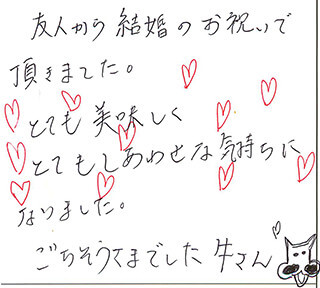 友人から結婚のお祝いで
頂きました。
とても美味しく
とてもしあわせな気持ちに
なりました。
ごちそうさまでした牛さん